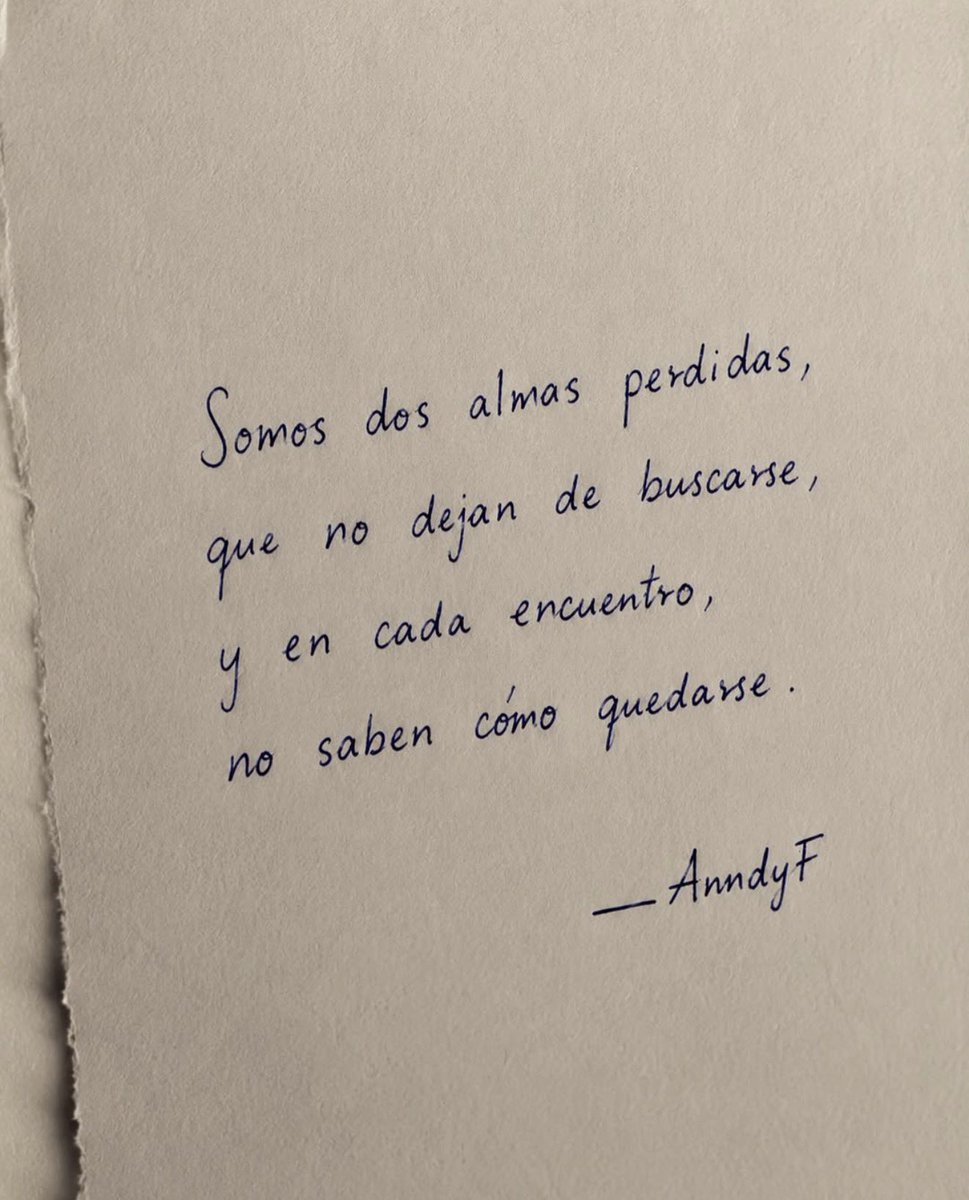 Somos dos almas perdidas,
que no dejan de buscarse,
y en cada encuentro,
no saben cómo quedarse.
__AnndyF